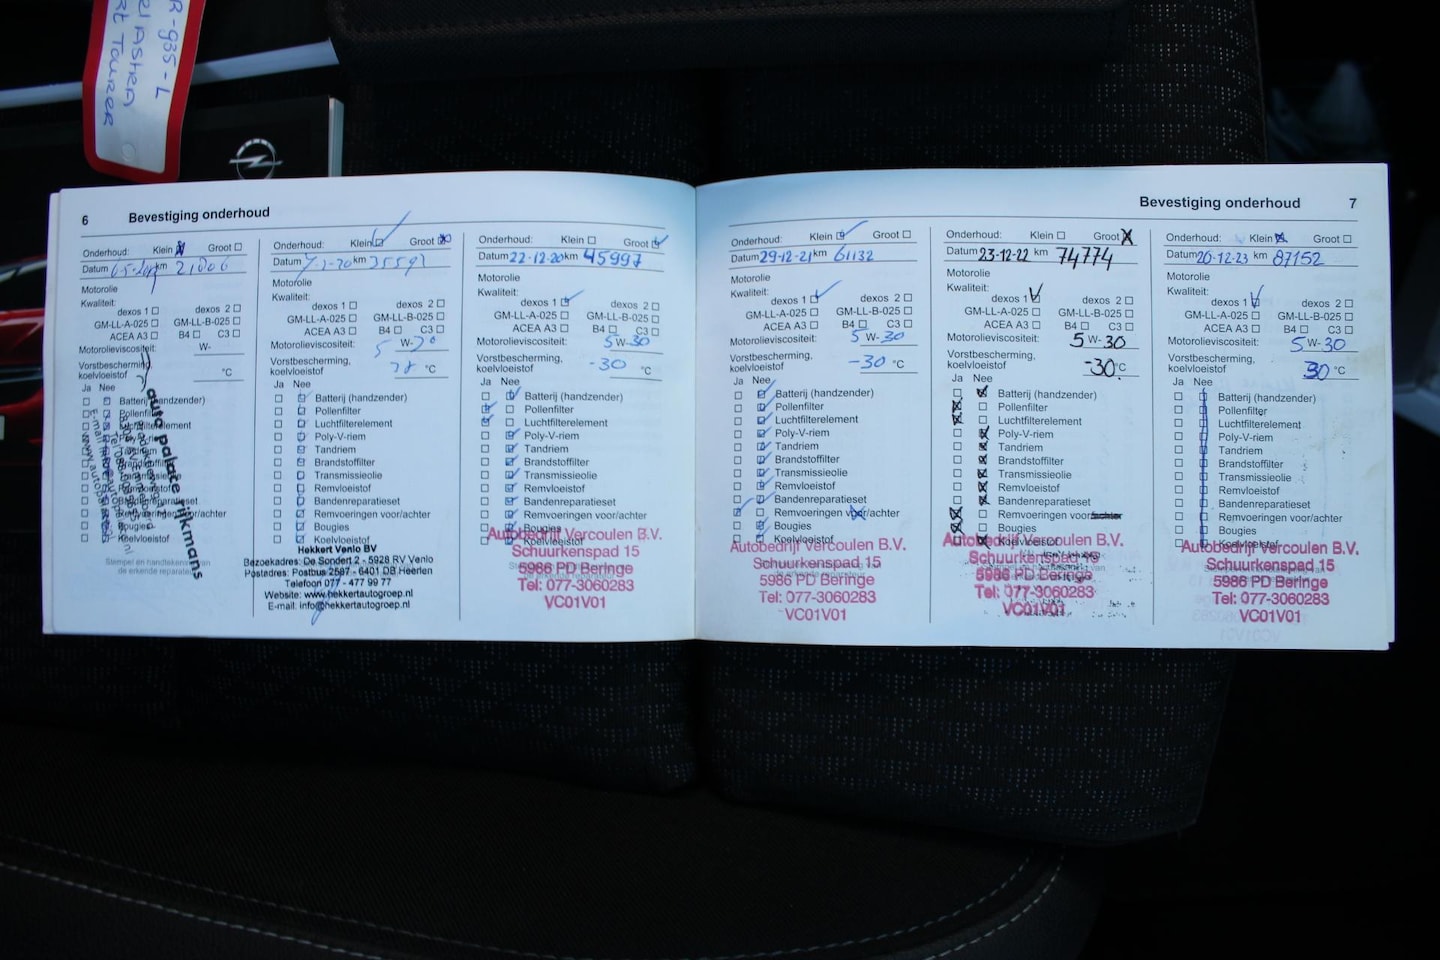 R-935-L
ASTRA
TOURER
6 Bevestiging onderhoud
Onderhoud: Klein Groot
Datum km 21006
Motorolie
Kwaliteit:
dexos 1 dexos 2
GM-LL-A-025 GM-LL-B-025
ACEA A3 B4 C3
Motorolieviscositeit: W-
Vorstbescherming,
koelvloeistof °C
Ja Nee
Batterij (handzender)
Pollenfilter
Luchtfilterelement
Poly-V-riem
Tandriem
Brandstoffilter
Transmissieolie
Remvloeistof
Bandenreparatieset
Remvoeringen voor/achter
Bougies
Koelvloeistof
Stempel en handtekening van
de erkende reparateur
auto palace rijkmans
Onderhoud: Klein Groot
Datum 7-2-20 km 35591
Motorolie
Kwaliteit:
dexos 1 dexos 2
GM-LL-A-025 GM-LL-B-025
ACEA A3 B4 C3
Motorolieviscositeit: 5 W-30
Vorstbescherming,
koelvloeistof °C
Ja Nee
Batterij (handzender)
Pollenfilter
Luchtfilterelement
Poly-V-riem
Tandriem
Brandstoffilter
Transmissieolie
Remvloeistof
Bandenreparatieset
Remvoeringen voor/achter
Bougies
Koelvloeistof
Hekkert Venlo BV
Bezoekadres: De Sondert 2 - 5928 RV Venlo
Postadres: Postbus 2587 - 6401 DB Heerlen
Telefoon 077 - 477 99 77
Website: www.hekkertautogroep.nl
E-mail: info@hekkertautogroep.nl
Onderhoud: Klein Groot
Datum 22-12-20 km 45997
Motorolie
Kwaliteit:
dexos 1 dexos 2
GM-LL-A-025 GM-LL-B-025
ACEA A3 B4 C3
Motorolieviscositeit: 5 W-30
Vorstbescherming,
koelvloeistof -30 °C
Ja Nee
Batterij (handzender)
Pollenfilter
Luchtfilterelement
Poly-V-riem
Tandriem
Brandstoffilter
Transmissieolie
Remvloeistof
Bandenreparatieset
Remvoeringen voor/achter
Bougies
Koelvloeistof
Autobedrijf Vercoulen B.V.
Schuurkenspad 15
5986 PD Beringe
Tel: 077-3060283
VC01V01
Bevestiging onderhoud 7
Onderhoud: Klein Groot
Datum 29-12-21 km 61132
Motorolie
Kwaliteit:
dexos 1 dexos 2
GM-LL-A-025 GM-LL-B-025
ACEA A3 B4 C3
Motorolieviscositeit: 5 W-30
Vorstbescherming,
koelvloeistof -30 °C
Ja Nee
Batterij (handzender)
Pollenfilter
Luchtfilterelement
Poly-V-riem
Tandriem
Brandstoffilter
Transmissieolie
Remvloeistof
Bandenreparatieset
Remvoeringen voor/achter
Bougies
Koelvloeistof
Autobedrijf Vercoulen B.V.
Schuurkenspad 15
5986 PD Beringe
Tel: 077-3060283
VC01V01
Onderhoud: Klein Groot
Datum 23-12-22 km 74774
Motorolie
Kwaliteit:
dexos 1 dexos 2
GM-LL-A-025 GM-LL-B-025
ACEA A3 B4 C3
Motorolieviscositeit: 5 W-30
Vorstbescherming,
koelvloeistof -30 °C
Ja Nee
Batterij (handzender)
Pollenfilter
Luchtfilterelement
Poly-V-riem
Tandriem
Brandstoffilter
Transmissieolie
Remvloeistof
Bandenreparatieset
Remvoeringen voor/achter
Bougies
Koelvloeistof
Autobedrijf Vercoulen B.V.
Schuurkenspad 15
5986 PD Beringe
Tel: 077-3060283
VC01V01
Onderhoud: Klein Groot
Datum 26-12-23 km 87152
Motorolie
Kwaliteit:
dexos 1 dexos 2
GM-LL-A-025 GM-LL-B-025
ACEA A3 B4 C3
Motorolieviscositeit: 5 W-30
Vorstbescherming,
koelvloeistof 30 °C
Ja Nee
Batterij (handzender)
Pollenfilter
Luchtfilterelement
Poly-V-riem
Tandriem
Brandstoffilter
Transmissieolie
Remvloeistof
Bandenreparatieset
Remvoeringen voor/achter
Bougies
Koelvloeistof
Autobedrijf Vercoulen B.V.
Schuurkenspad 15
5986 PD Beringe
Tel: 077-3060283
VC01V01